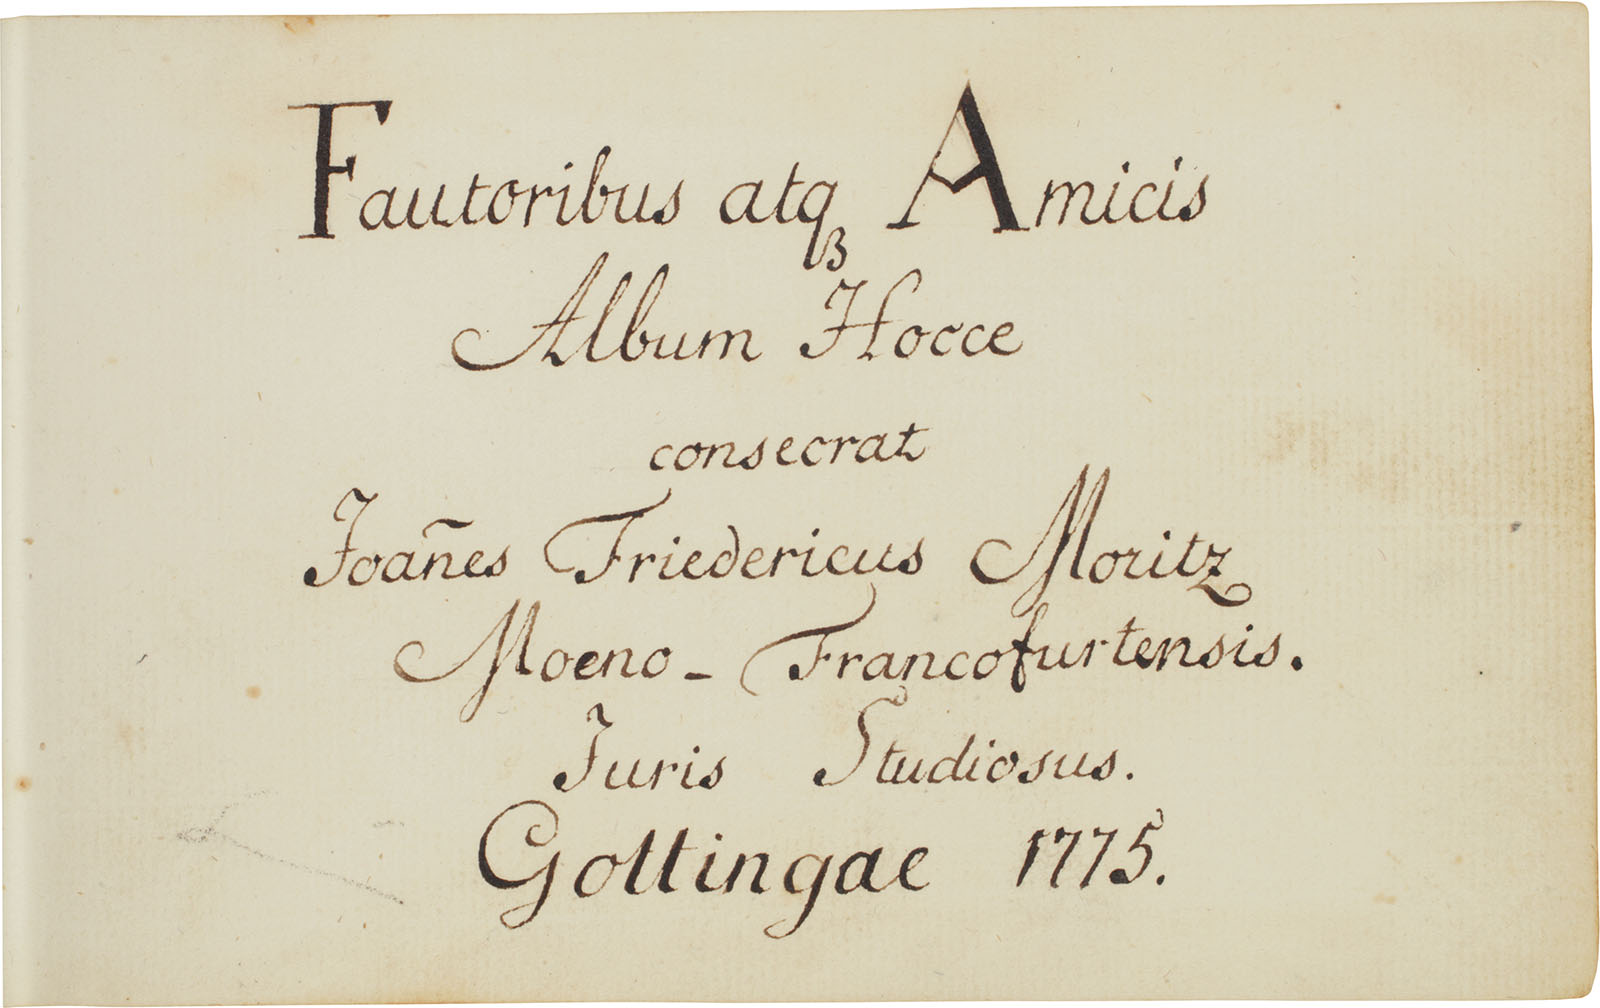 Fautoribus atqꝫ Amicis
Album Hocce
consecrat
Joañes Friedericus Moritz
Moeno - Francofurtensis.
Juris Studiosus.
Gottingae 1775.